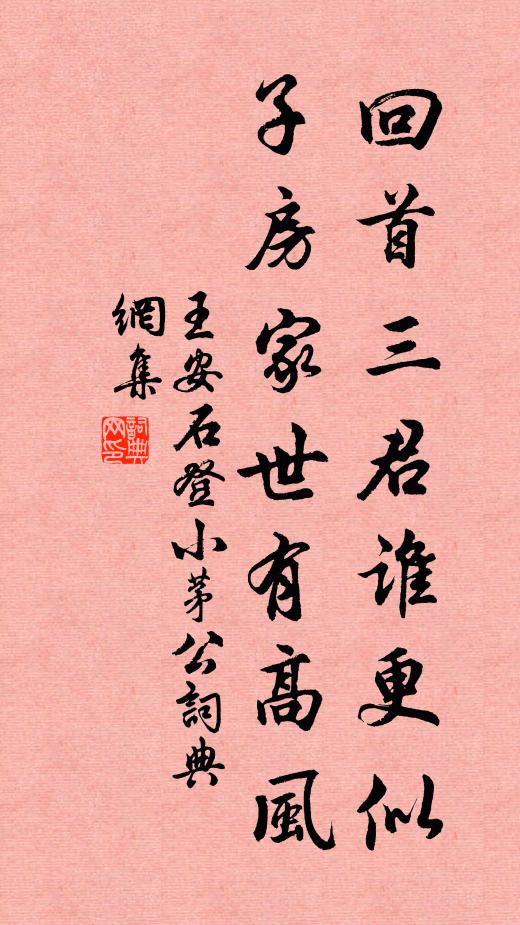 回首三君誰更似
子房家世有高風
王安石登小茅公詞典
網集
詞典
网印